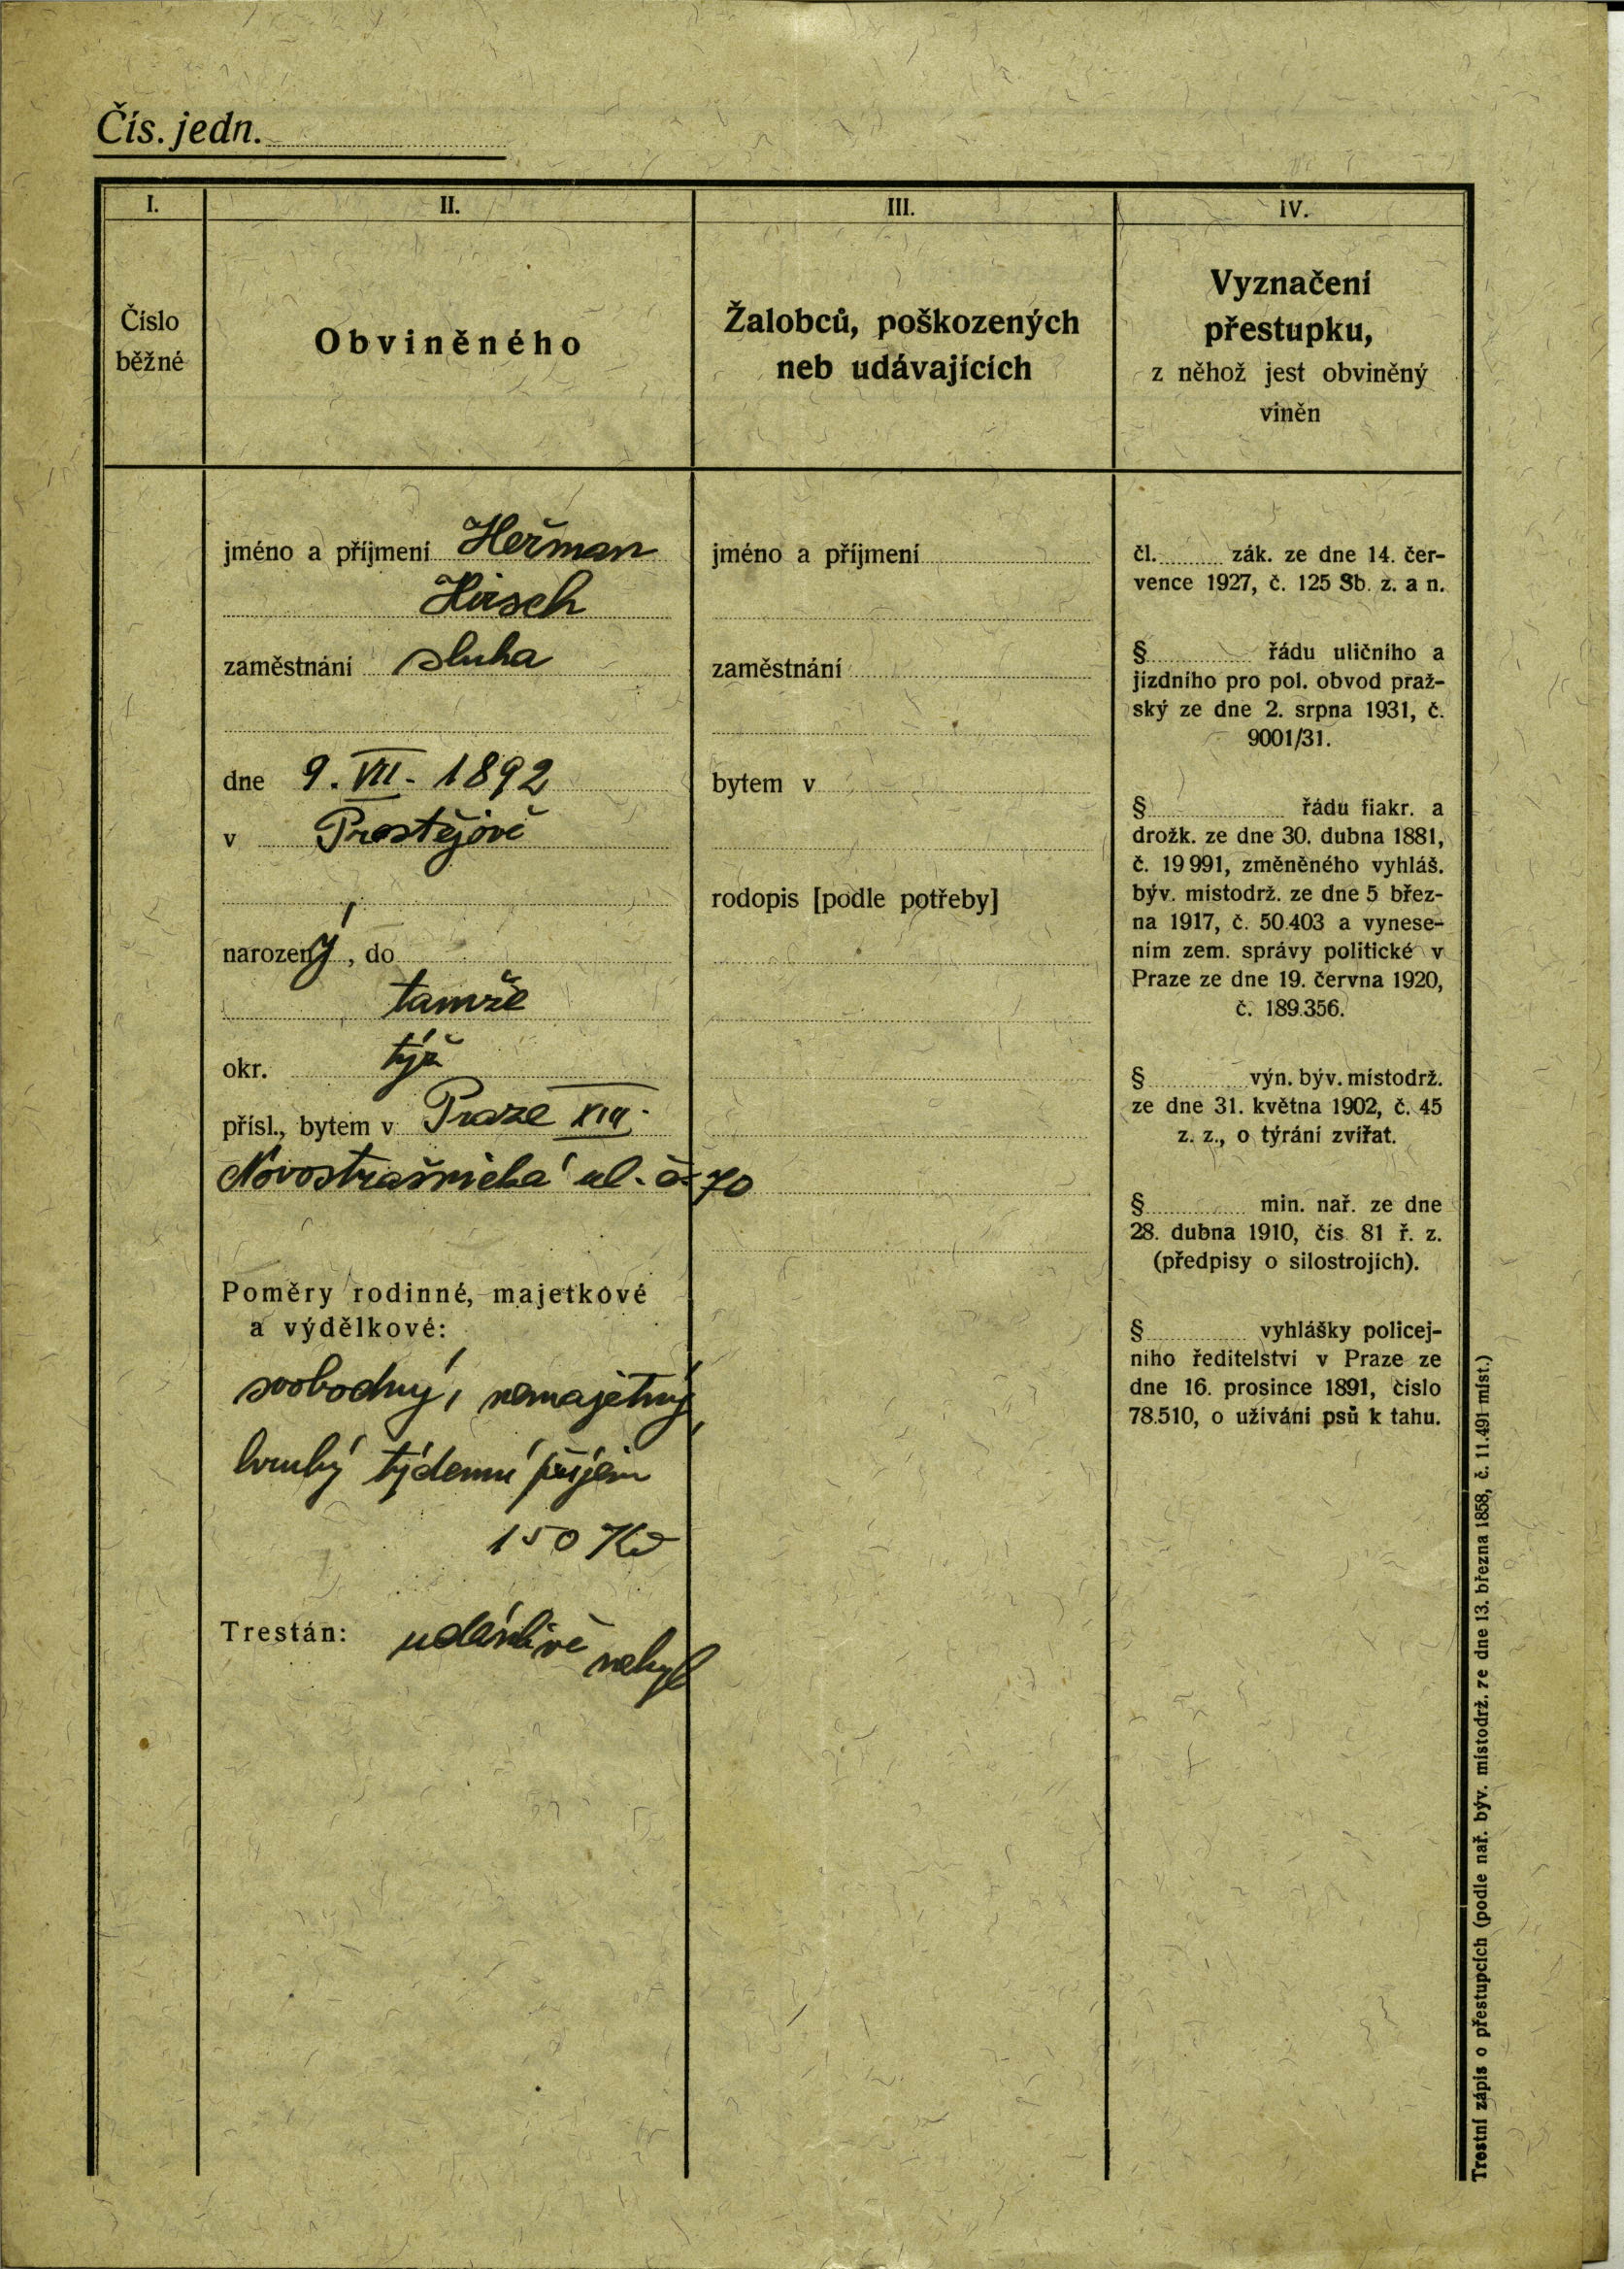 Čís. jedn.
I.
II.
III.
IV.
Číslo
běžné
Obviněného
Žalobců, poškozených
neb udávajících
Vyznačení
přestupku,
z něhož jest obviněný
viněn
jméno a příjmení Heřman
Hirsch
zaměstnání sluha
dne 9. VII. 1892
v Prostějově
narozený, do
tamže
okr. týž
přísl., bytem v Praze XIII.
Novostrašnická ul. č. 70
Poměry rodinné, majetkové
a výdělkové:
svobodný, nemajetný
hrubý týdenní příjem
150 Kč
Trestán: udánlivě
nebyl
jméno a příjmení
zaměstnání
bytem v
rodopis [podle potřeby]
čl. zák. ze dne 14. čer-
vence 1927, č. 125 Sb. z. a n.
§ řádu uličního a
jízdního pro pol. obvod praž-
ský ze dne 2. srpna 1931, č.
9001/31.
§ řádu fiakr. a
drožk. ze dne 30. dubna 1881,
č. 19 991, změněného vyhláš.
býv. místodrž. ze dne 5 břez-
na 1917, č. 50.403 a vynese-
ním zem. správy politické v
Praze ze dne 19. června 1920,
č. 189.356.
§ výn. býv. místodrž.
ze dne 31. května 1902, č. 45
z. z., o týrání zvířat.
§ min. nař. ze dne
28. dubna 1910, čís. 81 ř. z.
(předpisy o silostrojích).
§ vyhlášky policej-
ního ředitelství v Praze ze
dne 16. prosince 1891, číslo
78.510, o užívání psů k tahu.
Trestní zápis o přestupcích (podle nař. býv. místodrž. ze dne 13. března 1858, č. 11.491 míst.)